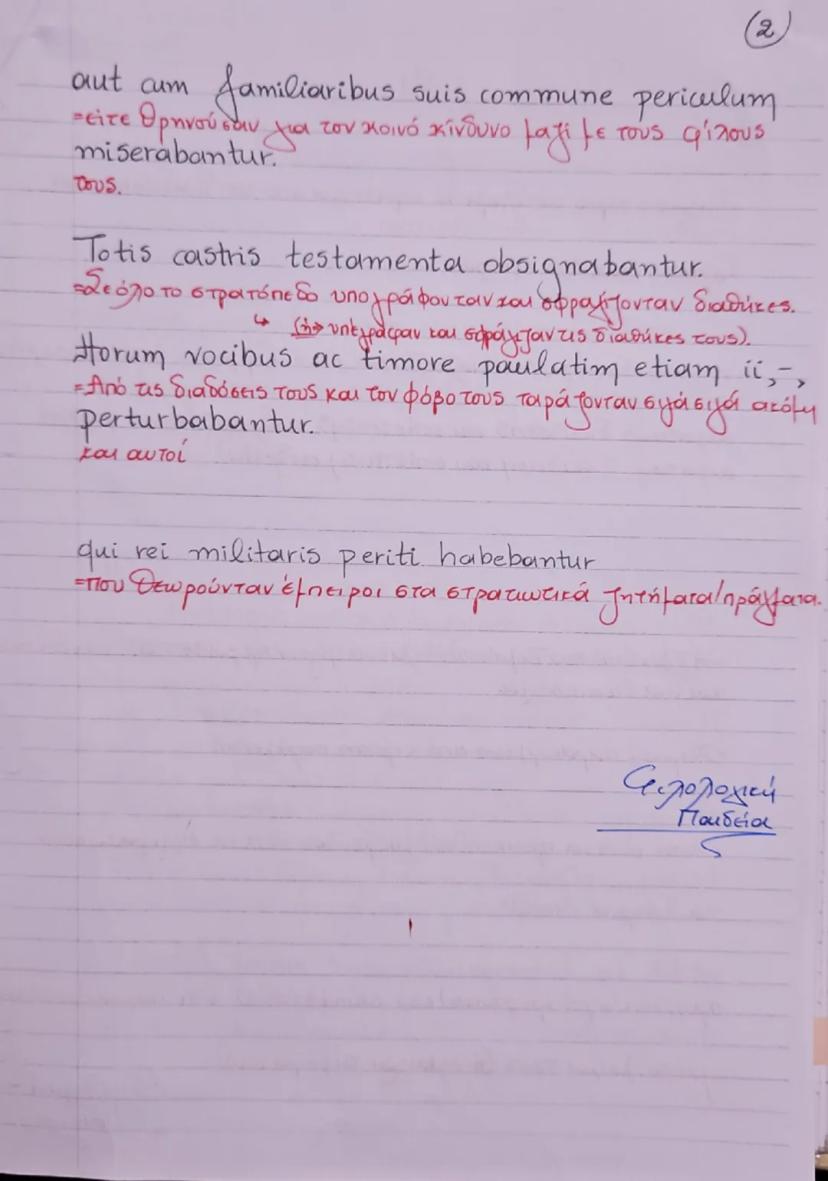 (2)
aut cum familiaribus suis commune periculum
=είτε θρηνούσαν για τον κοινό κίνδυνο μαζί με τους φίλους
miserabantur.
τους.
Totis castris testamenta obsignabantur.
=Σε όλο το στρατόπεδο υπογράφονταν και σφραγίζονταν διαθήκες.
↳ (ή → υπέγραφαν και σφράγιζαν τις διαθήκες τους).
Horum vocibus ac timore paulatim etiam ii,-,
=Από τις διαδόσεις τους και τον φόβο τους ταράζονταν σιγά σιγά ακόμη
perturbabantur.
και αυτοί
qui rei militaris periti habebantur
=που θεωρούνταν έμπειροι στα στρατιωτικά ζητήματα/πράγματα.
Φιλολογική
Παιδεία